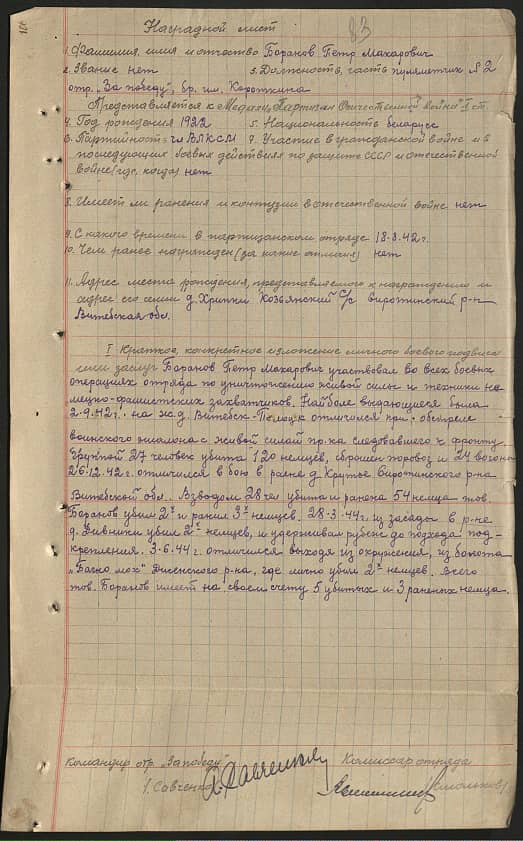 Наградной лист
83
1. Фамилия, имя и отчество Баранов Петр Макарович
2. Звание нет 3. Должность, часть пулеметчик
отр. "За победу", бр. им. Короткина
Представляется к Медали, Партизан Отечественной войны" I ст.
4. Год рождения 1922 5. Национальность беларусс
6. Партийность чл ВЛКСМ 7. Участие в гражданской войне и в
последующих боевых действиях по защите СССР и отечественной
войне (где, когда) нет
8. Имеет ли ранения и контузии в отечественной войне нет
9. С какого времени в партизанском отряде 18.3.42 г.
10. Чем ранее награжден (за какие отличия) нет
11. Адрес места рождения, представляемого к награждению и
адрес его семьи д. Хрипки Козьянский С/с Сиротинский р-н
Витебская обл.
I Краткое, конкретное изложение личного боевого подвига
или заслуг Баранов Петр Макарович участвовал во всех боевых
операциях отряда по уничтожению живой силы и техники не
мецко-фашистских захватчиков. Наиболе выдающиеся была
2-9-42 г. на ж.д. Витебск-Полоцк отличился при обстреле
воинского эшалона с живой силой пр-ка следовавшего к фронту
Группой 27 человек убита 120 немцев, сброшен поровоз и 24 вагона
26.12.42 г. отличился в бою в раене д. Крутое Сиротинского р-на
Витебской обл. Взводом 28 чел убита и ранена 54 немца тов.
Баранов убил 2х и ранил 3х немцев. 28-3-44 г. из засады в р-не
д. Дивники убил 2х немцев, и удерживал рубеж до подхода под-
крепления. 3-6.44 г. отличился выходя из окружения, из болота
"Бачно мох" Дисенского р-на, где лично убил 2х немцев. Всего
тов. Баранов имеет на своем счету 5 убитых и 3 раненых немца.
Командир отр. "За победу" Комиссар отряда
/. Савченко